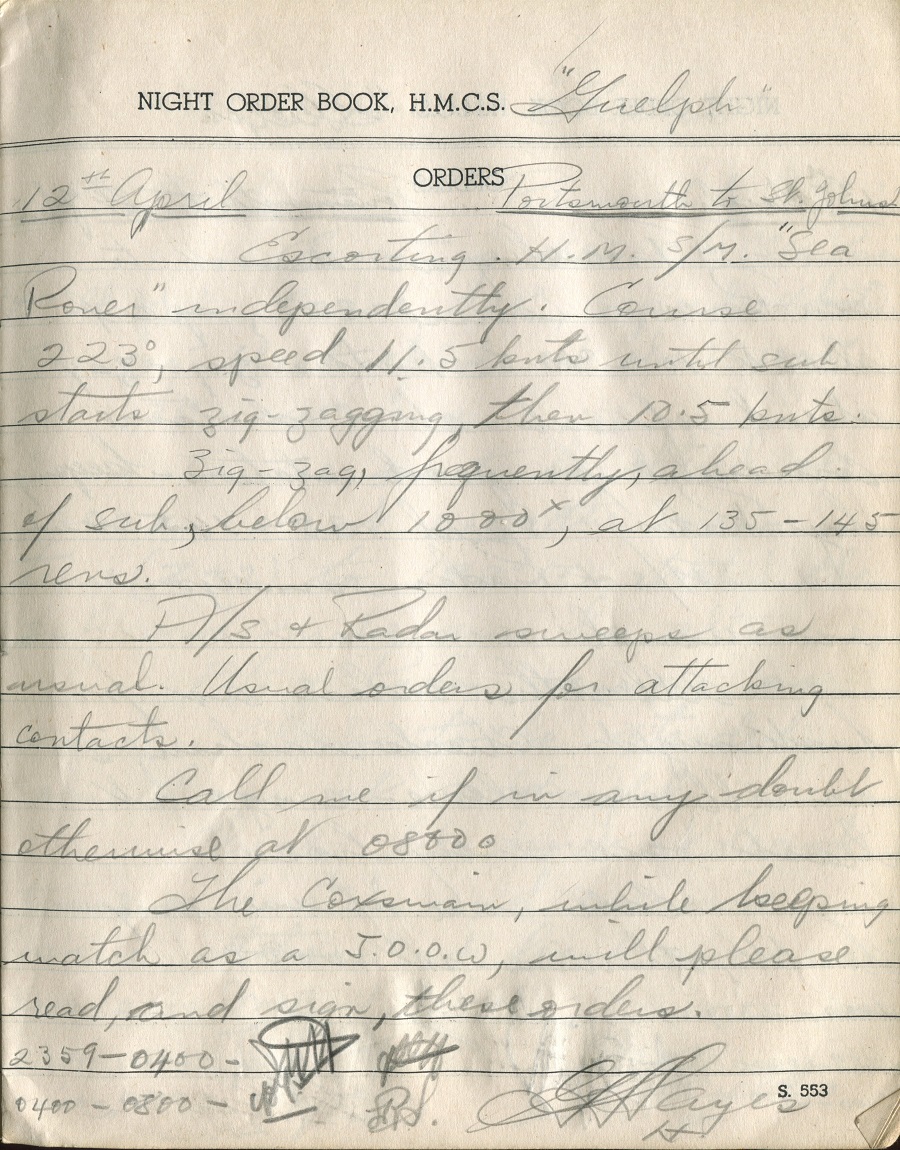 NIGHT ORDER BOOK, H.M.C.S. "Guelph"
ORDERS
12th April Portsmouth to St. Johns
Escorting H.M. S/M. "Sea
Rover" independently. Course
223°, speed 11.5 knts until sub
starts zig-zagging, then 10.5 knts.
Zig-zag, frequently, ahead
of sub, below 1000x, at 135-145
revs.
A/S + Radar sweeps as
usual. Usual orders for attacking
contacts.
Call me if in any doubt
otherwise at 0800
The Coxswain, while keeping
watch as a J.O.O.W, will please
read, and sign, these orders.
2359-0400-
0400-0800-
Hayes
S. 553